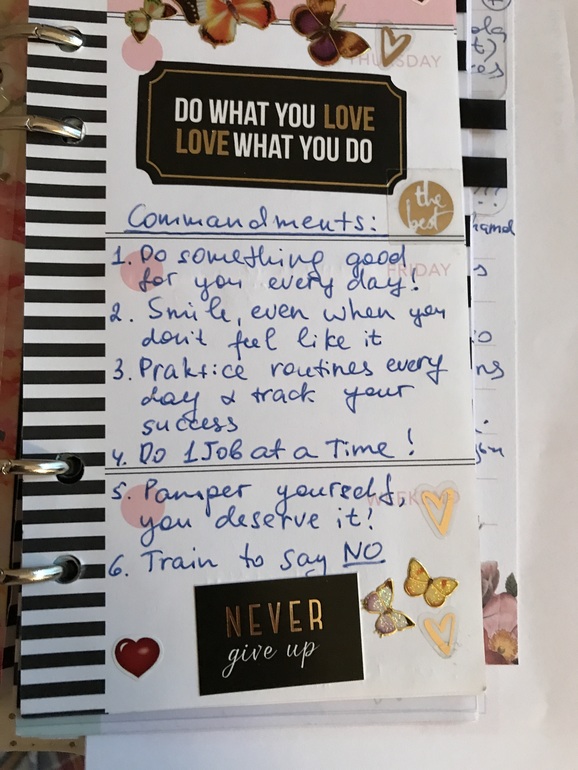 THURSDAY
DO WHAT YOU LOVE
LOVE WHAT YOU DO
the
best
Commandments:
1. Do something good
FRIDAY
for you every day!
2. Smile, even when you
don't feel like it
3. Praktice routines every
day & track your
success
4. Do 1 Job at a Time!
5. Pamper yourself,
WEEKEND
you deserve it!
6. Train to say NO
NEVER
give up